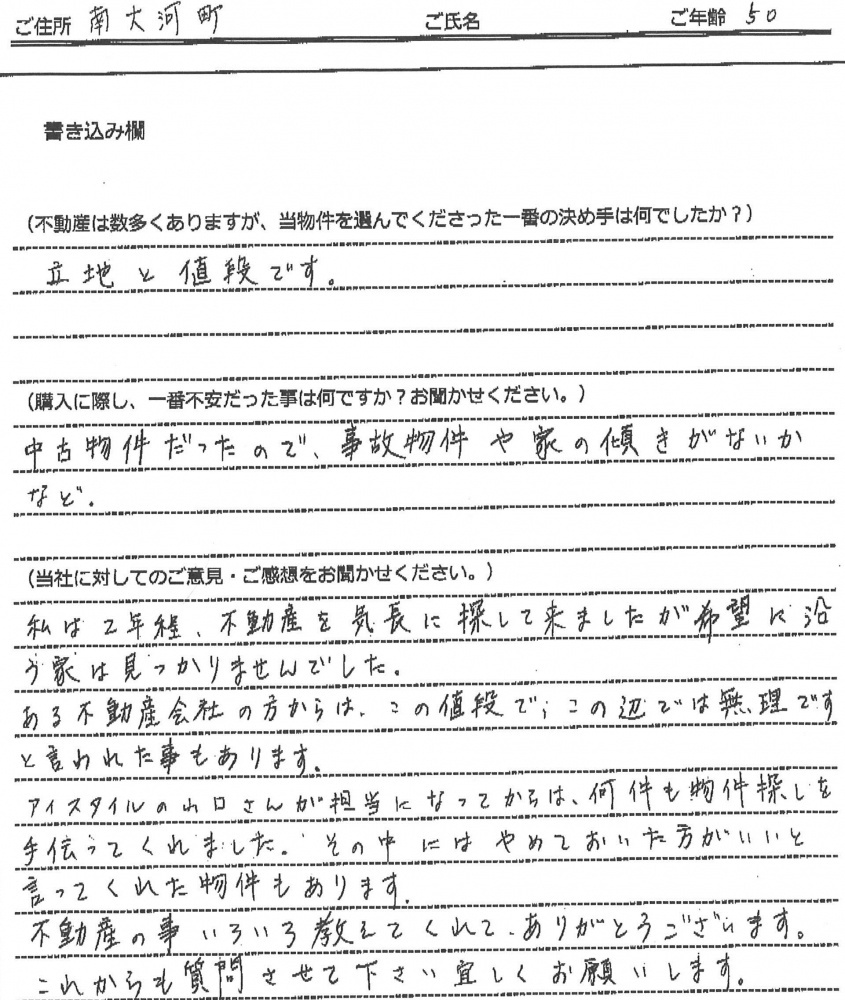 ご住所 南大河町 ご氏名 ご年齢 50
書き込み欄
（不動産は数多くありますが、当物件を選んでくださった一番の決め手は何でしたか？）
立地と値段です。
（購入に際し、一番不安だった事は何ですか？お聞かせください。）
中古物件だったので、事故物件や家の傾きがないか
など。
（当社に対してのご意見・ご感想をお聞かせください。）
私は2年程、不動産を気長に探して来ましたが希望に沿
う家は見つかりませんでした。
ある不動産会社の方からは、この値段で、この辺では無理です
と言われた事もあります。
アイスタイルの山口さんが担当になってからは、何件も物件探しを
手伝ってくれました。その中にはやめておいた方がいいと
言ってくれた物件もあります。
不動産の事いろいろ教えてくれて、ありがとうございます。
これからも質問させて下さい宜しくお願いします。